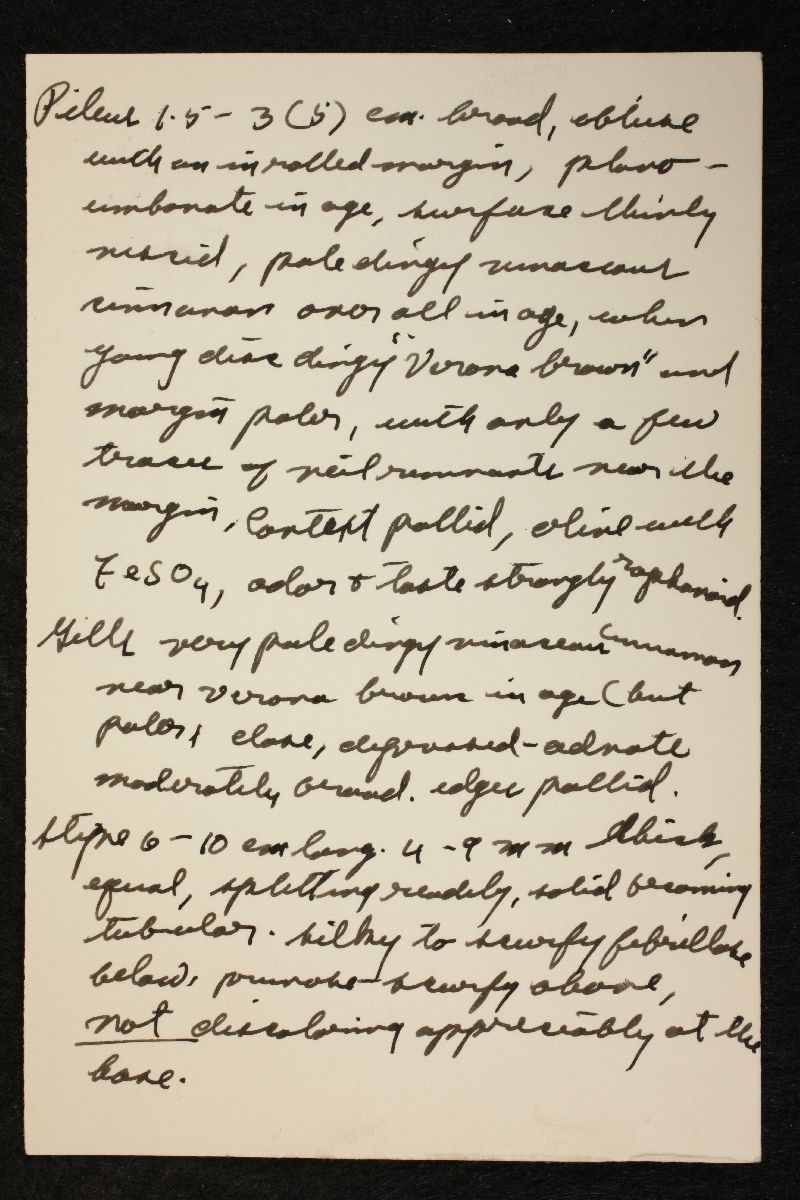 Pileus 1.5 - 3 (5) cm. broad, obtuse
with an inrolled margin, plano-
umbonate in age, surface thinly
viscid, pale dingy vinaceous
cinnamon over all in age, when
young disc dingy "Verona brown" and
margin paler, with only a few
traces of veil remnants near the
margin, Context pallid, olive with
FeSO4, odor & taste strongly raphanoid.
Gills very pale dingy vinaceous cinnamon
near verona brown in age (but
paler, close, depressed-adnate
moderately broad. edges pallid.
Stipe 6 - 10 cm long. 4 - 9 mm thick,
equal, splitting readily, solid becoming
tubular. silky to scurfy fibrillose
below, pruinose-scurfy above,
not discoloring appreciably at the
base.